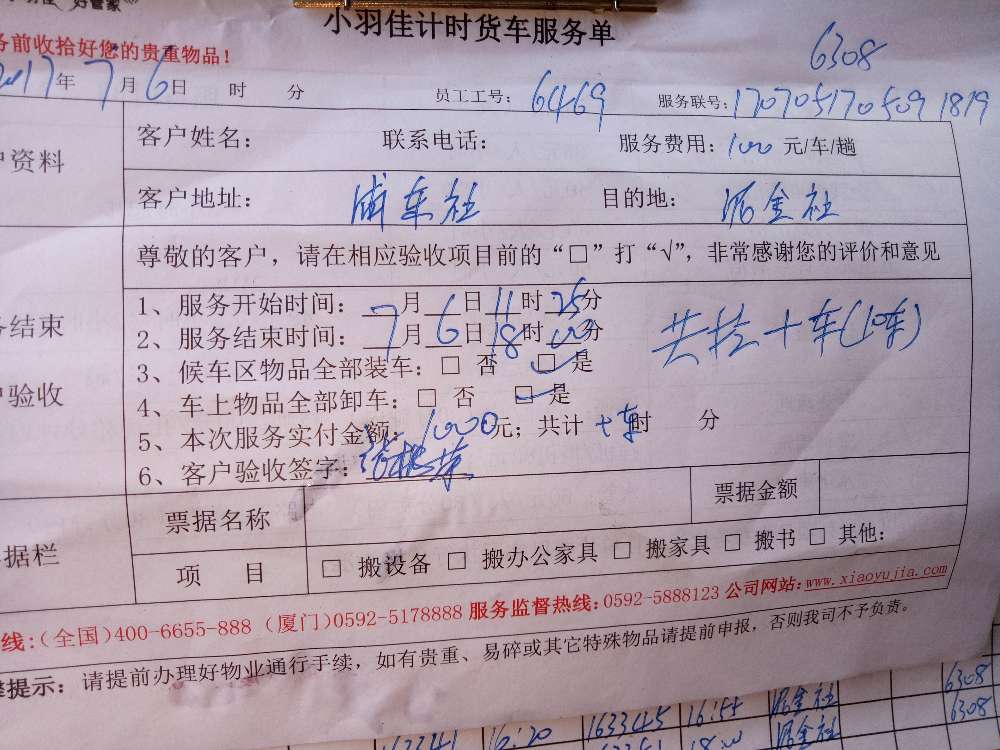 好管家
小羽佳计时货车服务单
务前收拾好您的贵重物品！
6308
2017年7月6日 时 分 员工工号：6469 服务联号：170705170509 1819
户资料 客户姓名： 联系电话： 服务费用：100元/车/趟
客户地址： 浦车社 目的地： 泥金社
尊敬的客户，请在相应验收项目前的“□”打“√”，非常感谢您的评价和意见
1、服务开始时间：7月6日11时25分
务结束 2、服务结束时间：7月6日18时00分 共拉十车(10车)
3、候车区物品全部装车：□ 否 ☑ 是
户验收 4、车上物品全部卸车：□ 否 ☑ 是
5、本次服务实付金额：1000元；共计 十车时 分
6、客户验收签字：
票据名称 票据金额
据栏 项 目 □ 搬设备 □ 搬办公家具 □ 搬家具 □ 搬书 □ 其他：
线：(全国)400-6655-888 (厦门)0592-5178888 服务监督热线：0592-5888123 公司网站：www.xiaoyujia.com
提示：请提前办理好物业通行手续，如有贵重、易碎或其它特殊物品请提前申报，否则我司不予负责。
163345 16:55 泥金社 6308
163341 16:20 泥金社 6308
18:00